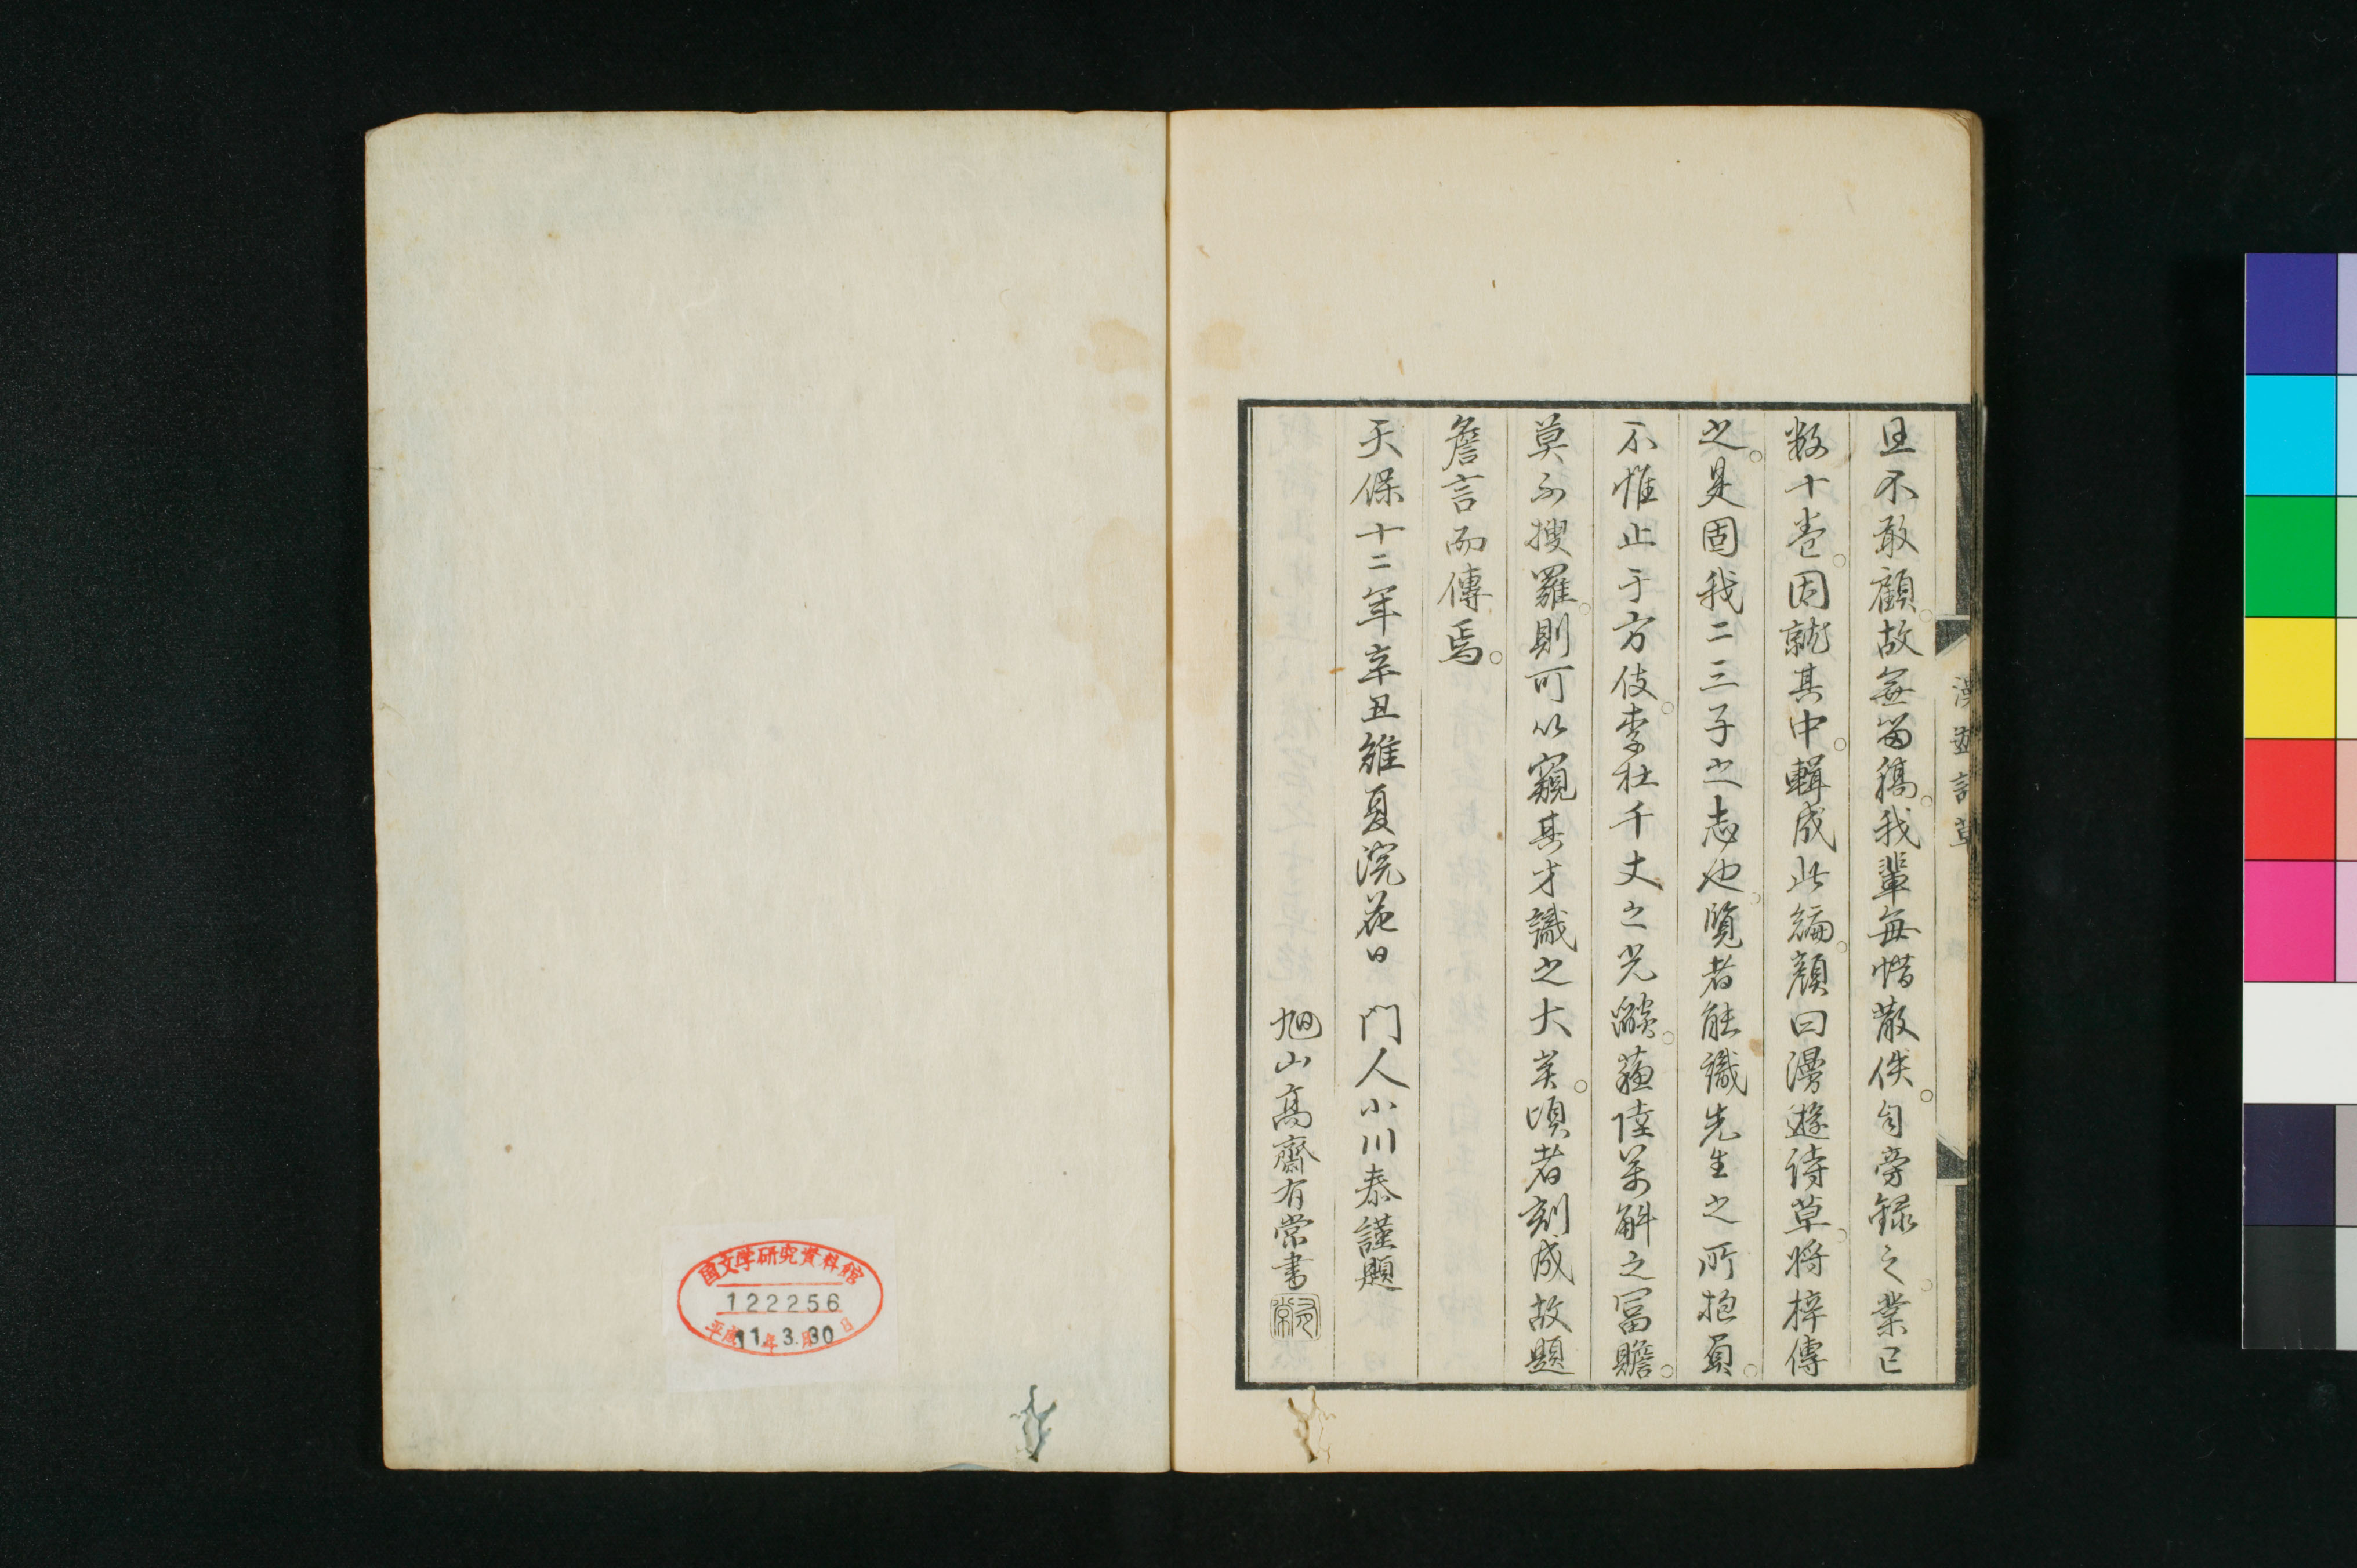 且不敢顧故無留稿我輩每惜散佚自旁録之業已
数十巻因就其中輯成此編顔曰漫遊詩草将梓傳
之是固我二三子之志也覧者能識先生之所抱負
不惟止于方伎李杜千丈之光燄蘓陸萬斛之冨贍
莫不搜羅則可以窺其才識之大矣頃者刻成故題
詹言而傳焉
天保十二年辛丑維夏浣花日　門人小川泰謹題
旭山髙齋有常書
有常
漫遊詩草
国文学研究資料館
122256
平成11年3月30日